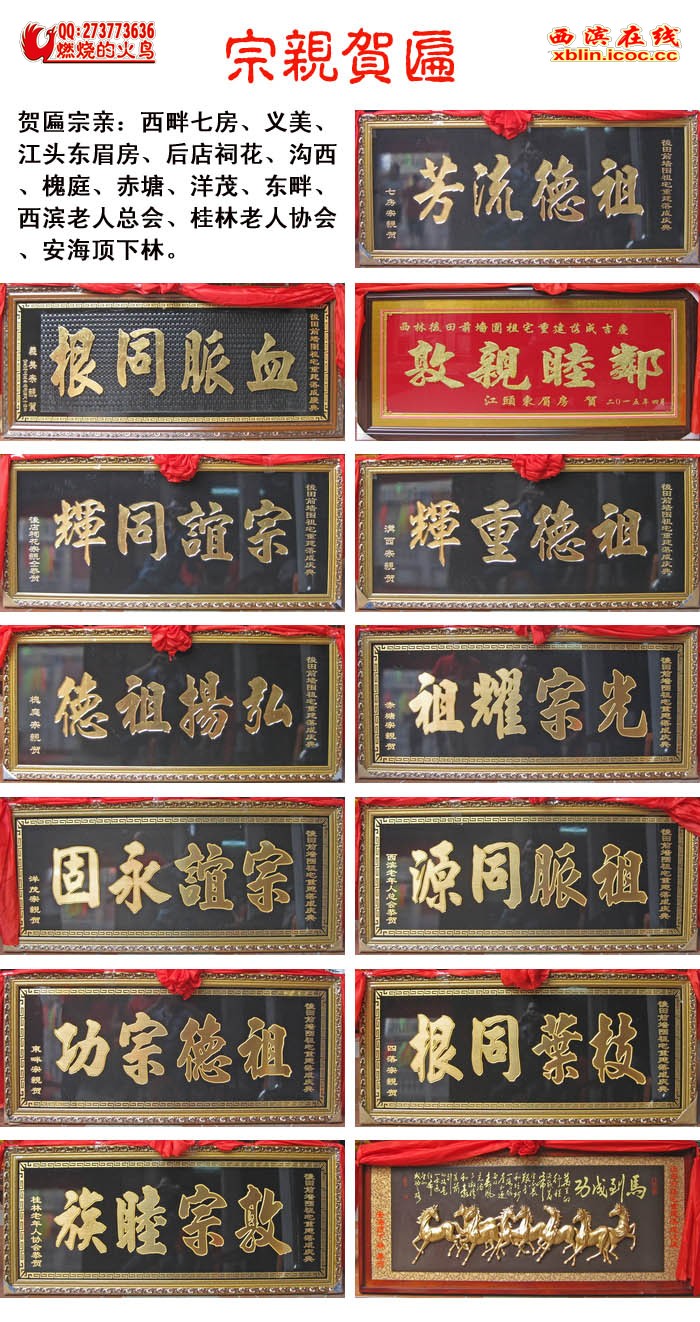 QQ:273773636
燃烧的火鸟
宗親賀匾
西滨在线
xblin.icoc.cc
贺匾宗亲：西畔七房、义美、
江头东眉房、后店祠花、沟西
、槐庭、赤塘、洋茂、东畔、
西滨老人总会、桂林老人协会
、安海顶下林。
後田前墙围祖宅重建落成庆典
祖德流芳
七房宗親贺
後田前墙围祖宅重建落成庆典
血脈同根
義美宗親賀
西林後田前墙圍祖宅重建落成吉慶
鄰睦親敦
江頭東眉房 賀 二〇一五年四月
後田前墙围祖宅重建落成庆典
宗誼同輝
後店祠花宗親仝恭贺
後田前墙围祖宅重建落成庆典
祖德重輝
溝西宗親贺
後田前墙围祖宅重建落成庆典
弘揚祖德
槐庭宗親贺
後田前墙围祖宅重建落成庆典
光宗耀祖
赤塘宗親贺
後田前墙围祖宅重建落成庆典
宗誼永固
洋茂宗親贺
後田前墙围祖宅重建落成庆典
祖脈同源
西滨老年人总会恭贺
後田前墙围祖宅重建落成庆典
祖德宗功
東畔宗親贺
後田前墙围祖宅重建落成庆典
枝葉同根
四落宗親贺
後田前墙围祖宅重建落成庆典
敦宗睦族
桂林老年人协会恭贺
馬到成功